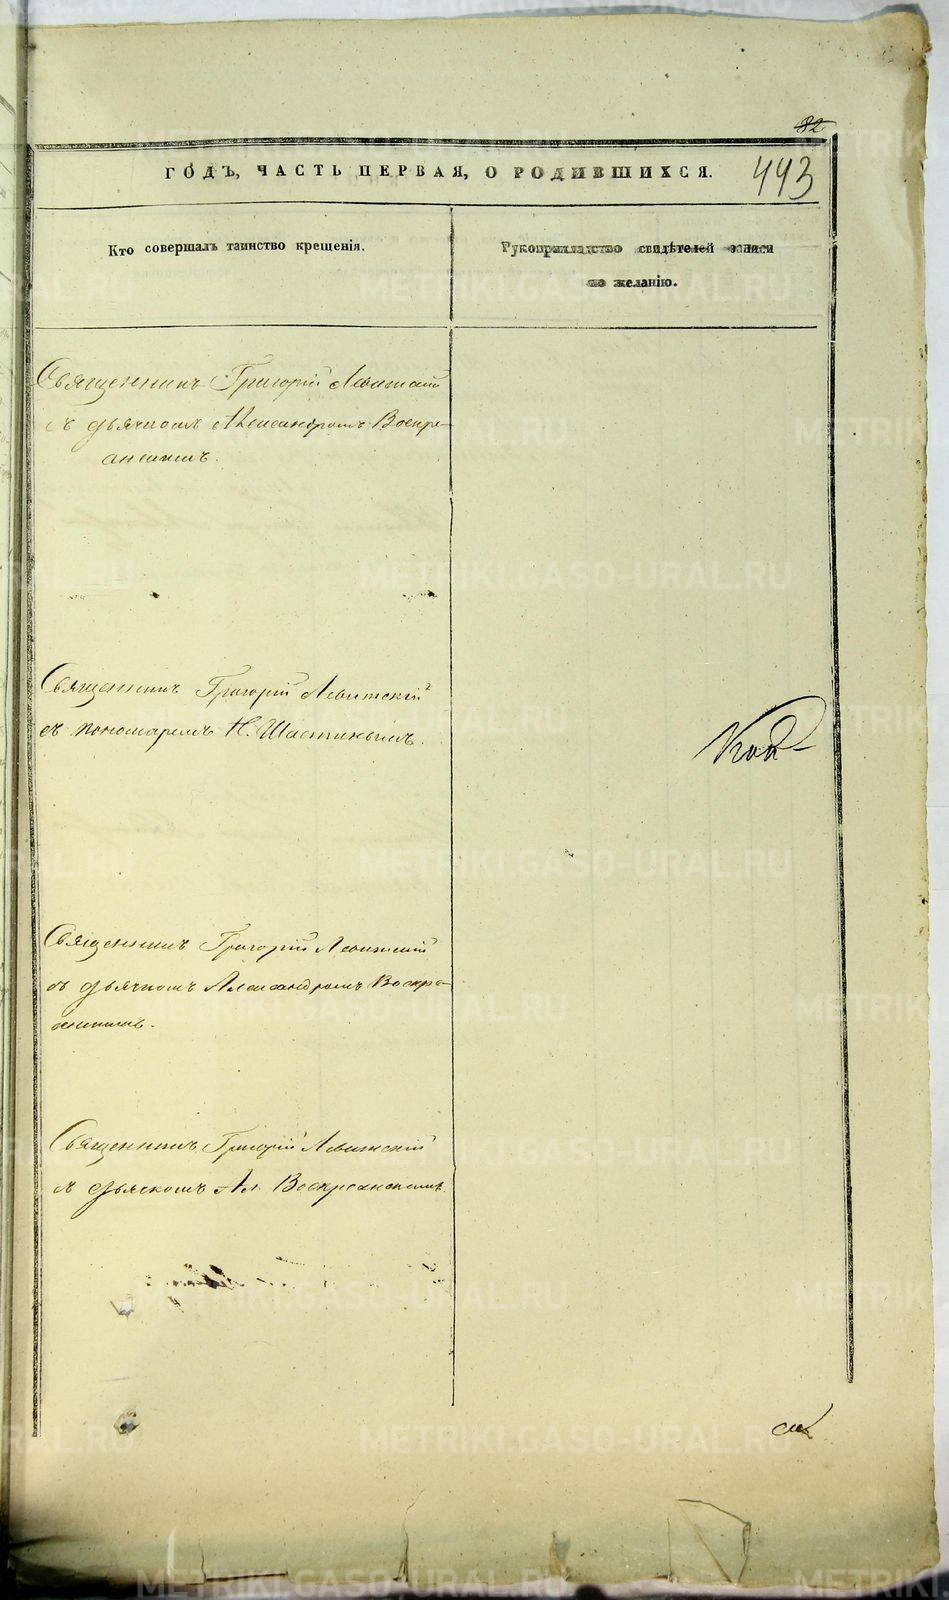 82
ГОДЪ, ЧАСТЬ ПЕРВАЯ, О РОДИВШИХСЯ.
443
Кто совершалъ таинство крещенія.
Рукоприкладство свидѣтелей записи
по желанію.
Священникъ Григорій Левитскій
съ дьячкомъ Александромъ Воскре-
сенскимъ.
Священникъ Григорій Левитскій
съ пономаремъ Н.
Священникъ Григорій Левитскій
съ дьячкомъ Александромъ Воскре-
сенскимъ.
Священникъ Григорій Левитскій
съ дьячкомъ Ал. Воскресенскимъ.
METRIKI.GASO-URAL.RU